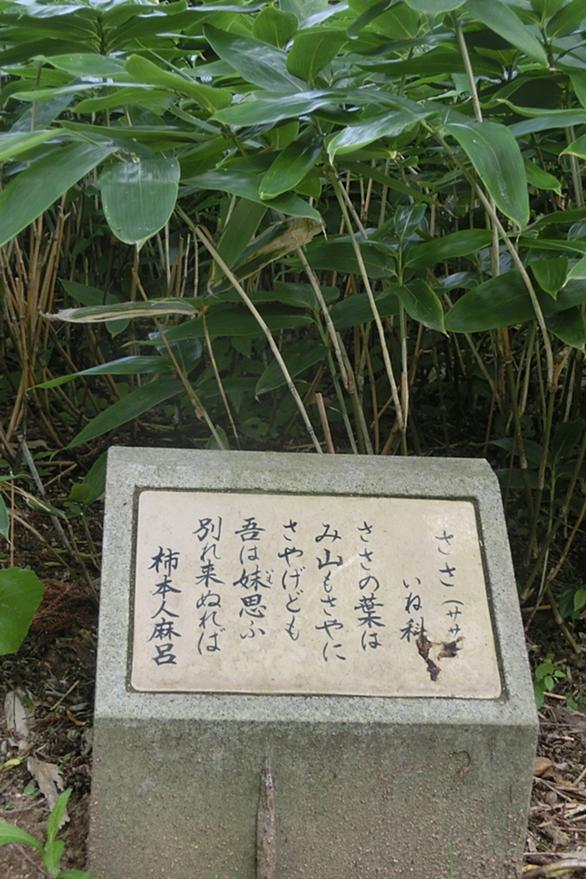 ささ(ササ
いね科
ささの葉は
み山もさやに
さやげども
吾は妹思ふ
別れ来ぬれば
柿本人麻呂